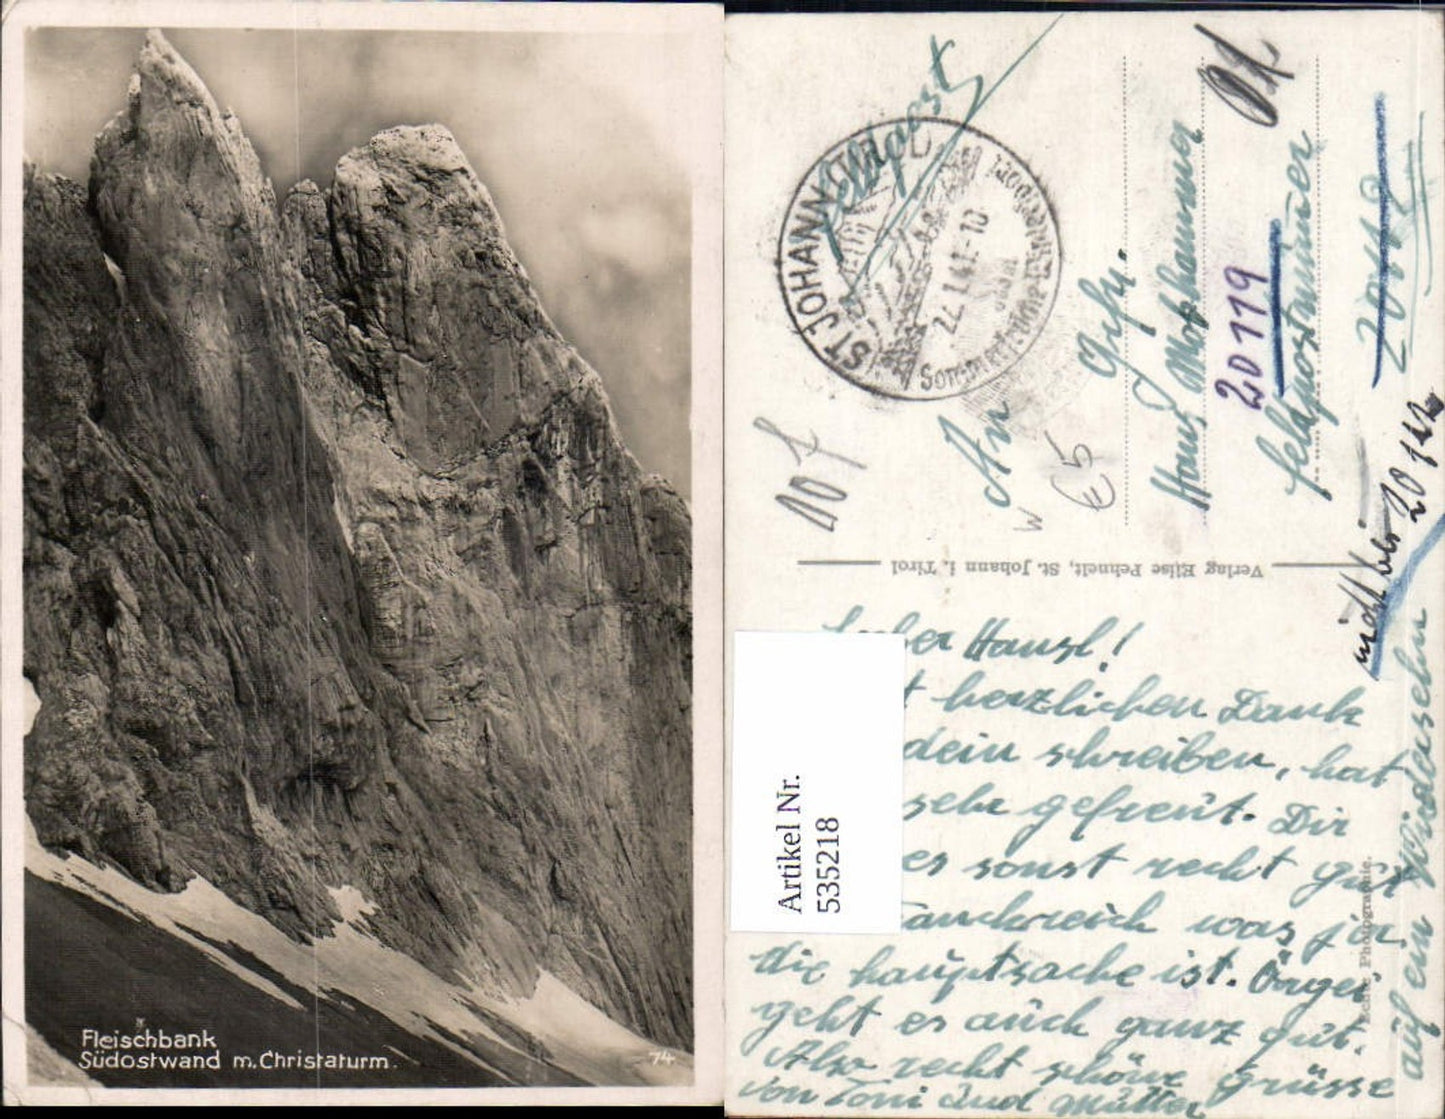 Fleischbank
Südostwand m. Christaturm.
74
Feldpost
ST JOHANN TIROL
22.1.41.-10
Sommerfrische
10 f
An
Gefr.
Hans
20119
Feldpostnummer
20112
nicht bei 20112
€5
w
Verlag Elise Pehnelt, St. Johann i. Tirol
Echte Photographie.
Artikel Nr.
535218
Lieber Hansl!
herzlichen Dank
dein schreiben, hat
sehr gefreut. Dir
es sonst recht gut
Frankreich was ja
die hauptsache ist.
geht es auch ganz gut.
Also recht schöne Grüsse
von Toni und Mutter
auf ein Wiedersehn